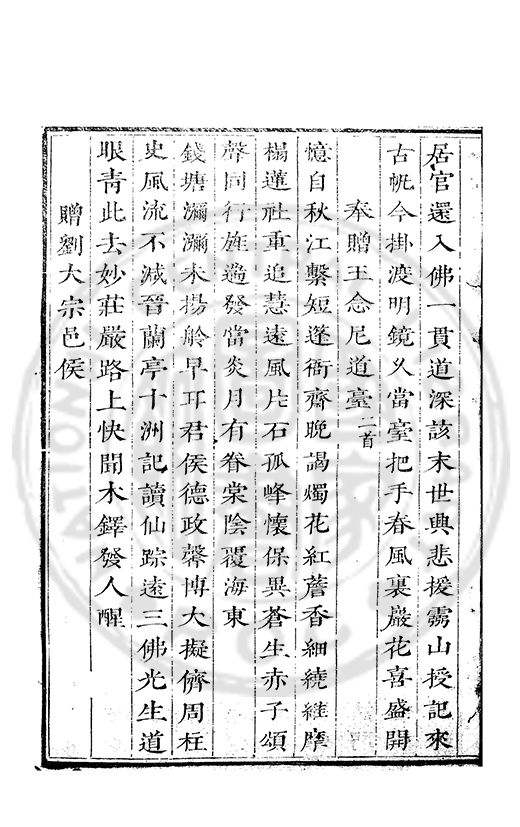 居官還入佛一貫道深該末世興悲援靈山授記來
古帆今掛渡明鏡又當臺把手春風裏巖花喜盛開
奉贈王念尼道臺二首
憶自秋江繫短蓬衙齋晚謁燭花紅薝香細繞維摩
榻蓮社重追慧遠風片石孤峰懷保異蒼生赤子頌
聲同行旌適發當炎月有眷棠陰覆海東
錢塘瀰瀰未揚舲早耳君侯德政馨博大擬儕周柱
史風流不減晉蘭亭十洲記讀仙踪遠三佛光生道
眼青此去妙莊嚴路上快聞木鐸發人醒
贈劉大宗邑侯